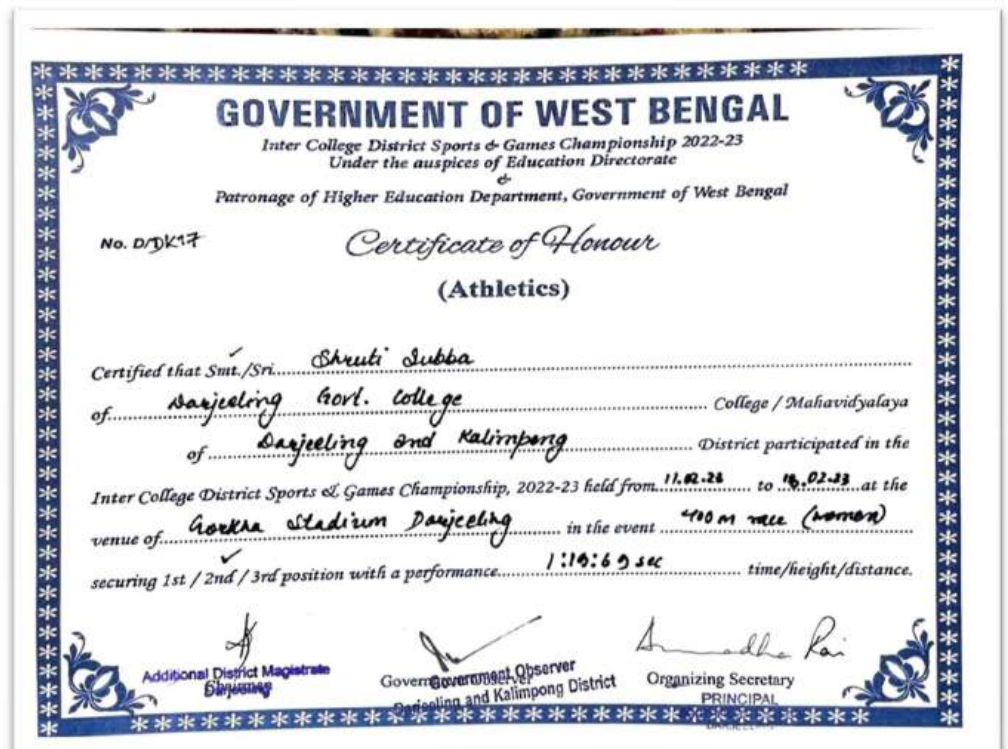 GOVERNMENT OF WEST BENGAL
Inter College District Sports & Games Championship 2022-23
Under the auspices of Education Directorate
&
Patronage of Higher Education Department, Government of West Bengal
No. D/DK17
Certificate of Honour
(Athletics)
Certified that Smt./Sri. Shruti Subba
of Darjeeling Govt. College College / Mahavidyalaya
of Darjeeling and Kalimpong District participated in the
Inter College District Sports & Games Championship, 2022-23 held from 11.02.23 to .02.23 at the
venue of Gorkha Stadium Darjeeling in the event 400 m race (women)
securing 1st / 2nd / 3rd position with a performance 1:19:69 sec time/height/distance.
Additional District Magistrate
Darjeeling
Government Observer
Darjeeling and Kalimpong District
Anuradha Rai
Organizing Secretary
PRINCIPAL